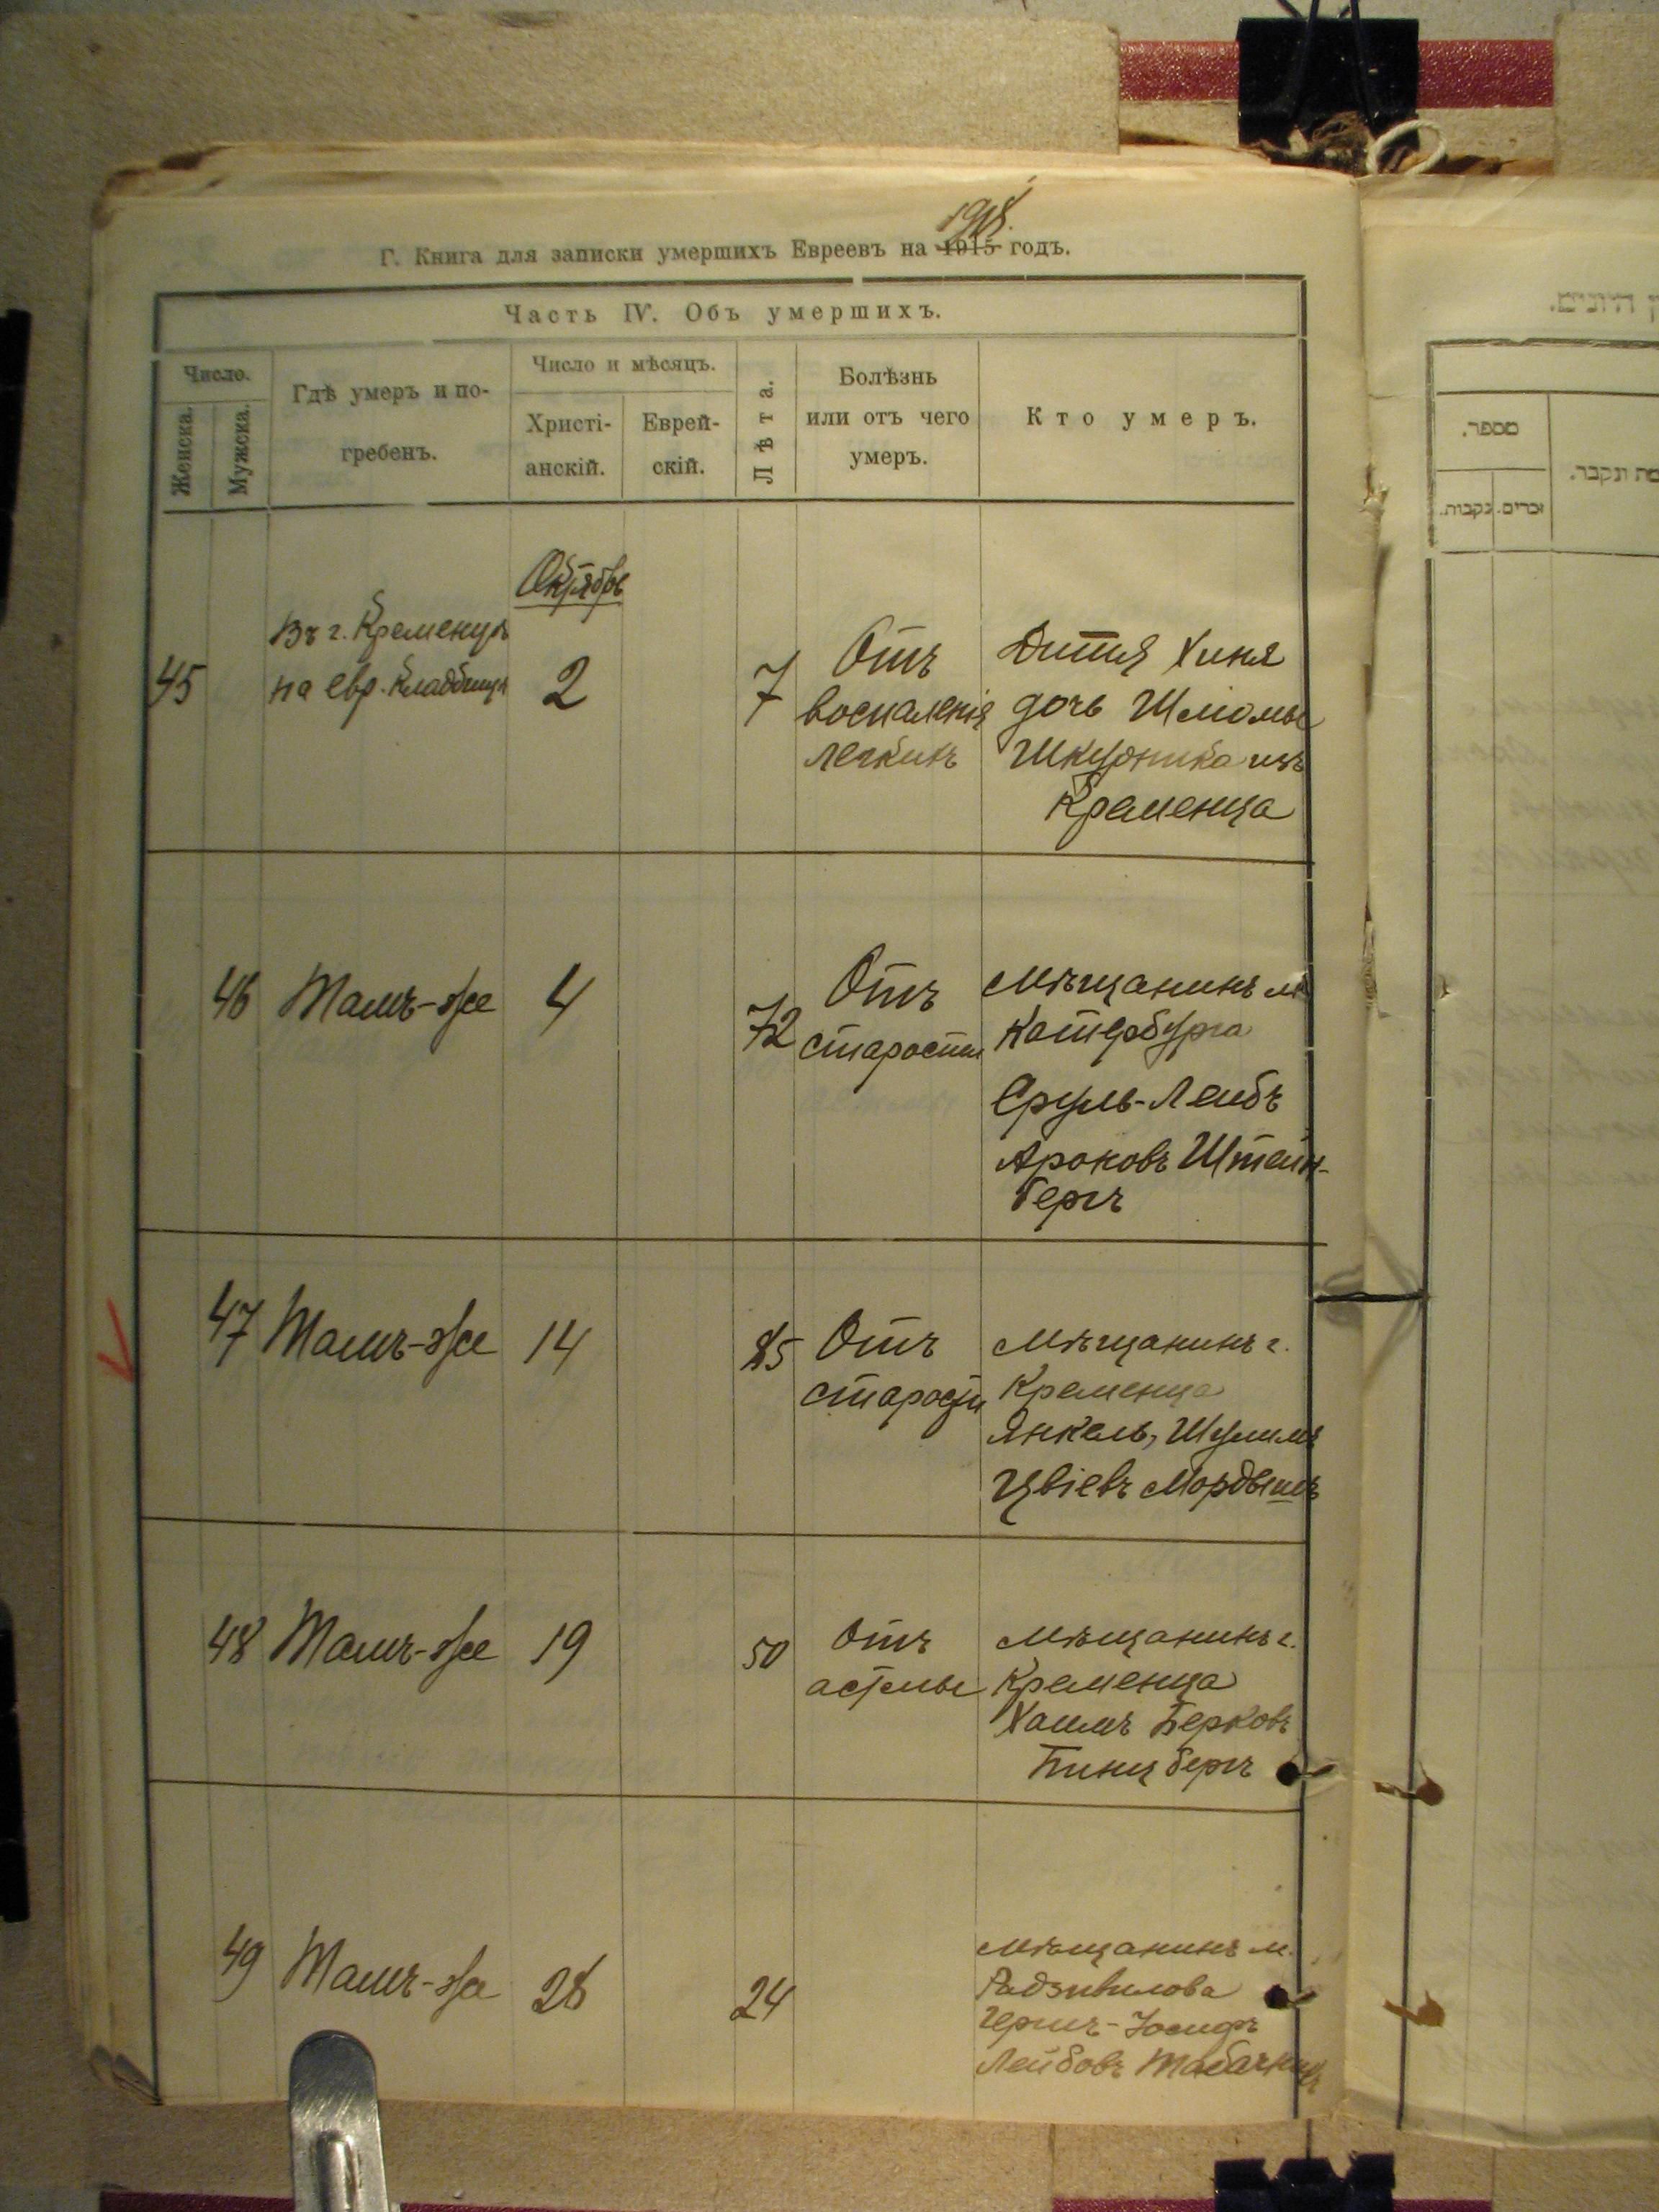 1918.
Г. Книга для записки умершихъ Евреевъ на 1915 годъ.
Часть IV. Объ умершихъ.
Число.
Женска.
Мужска.
Гдѣ умеръ и по-
гребенъ.
Число и мѣсяцъ.
Христі-
анскій.
Еврей-
скій.
Лѣта.
Болѣзнь
или отъ чего
умеръ.
Кто умеръ.
Октябрь
45
Въ г. Кременцѣ
на евр. кладбищѣ
2
7
Отъ
воспаленія
легкихъ
Дитя Хиня
дочь Шліомы
Шкурника изъ
Кременца
46
Тамъ-же
4
72
Отъ
старости
Мѣщанинъ м.
Катербурга
Сруль-Лейбъ
Ароновъ Штейн-
бергъ
47
Тамъ-же
14
85
Отъ
старости
Мѣщанинъ г.
Кременца
Янкель, Шулимъ
Цвіевъ Мордышъ
48
Тамъ-же
19
50
Отъ
астмы
Мѣщанинъ г.
Кременца
Хаимъ Берковъ
Гинцбергъ
49
Тамъ-же
28
24
Мѣщанинъ м.
Радзивилова
Гершъ-Іосифъ
Лейбовъ Табачникъ
מספר.
זכרים.
נקבות.
ונקבר.